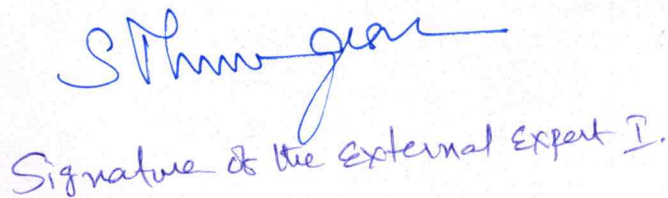 Signature of the External Expert I.